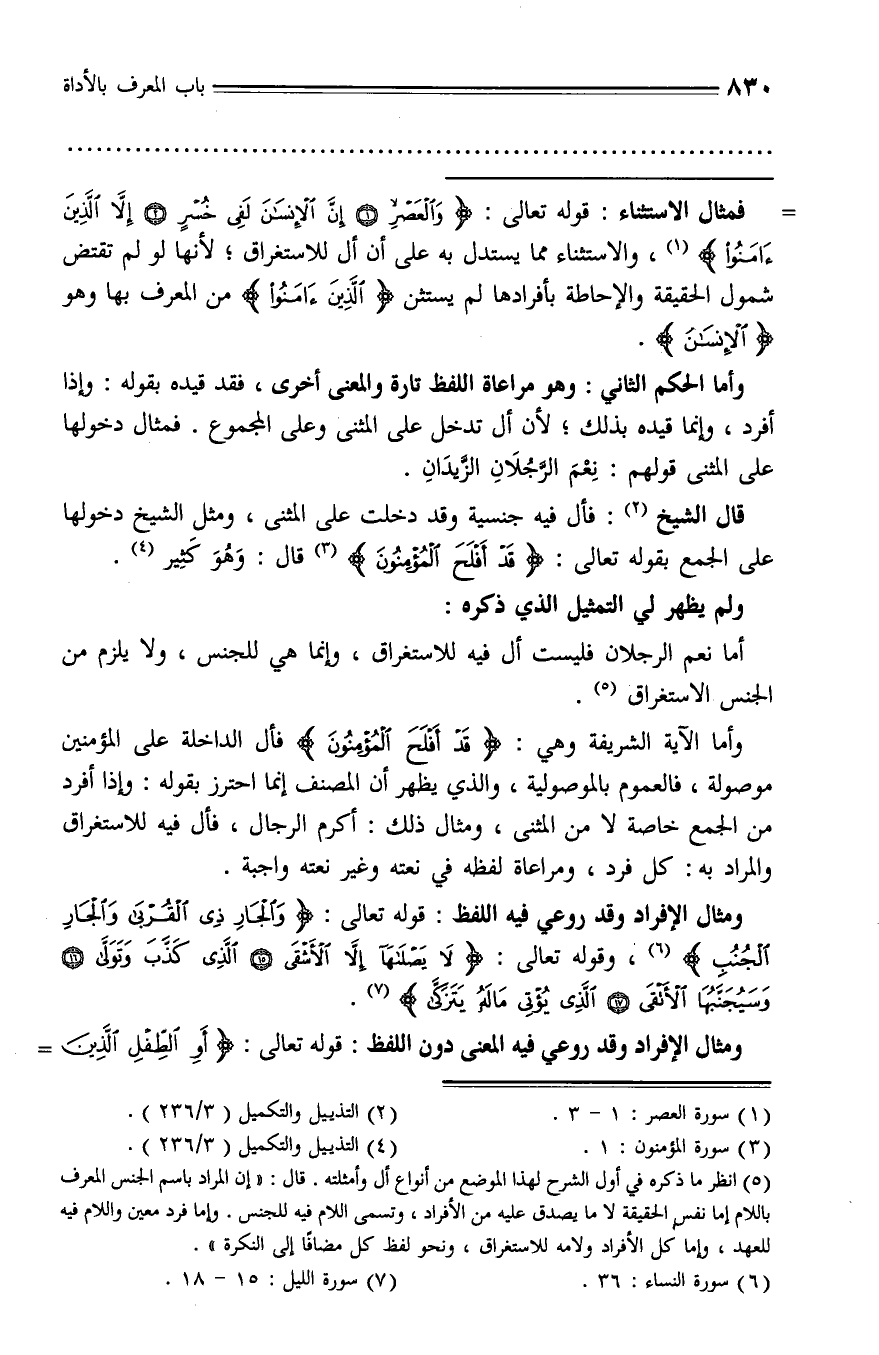 ٨٣٠ باب المعرف بالأداة
= فمثال الاستثناء : قوله تعالى : ﴿ وَٱلْعَصْرِ ۝١ إِنَّ ٱلْإِنسَٰنَ لَفِى خُسْرٍ ۝٢ إِلَّا ٱلَّذِينَ
ءَامَنُوا۟ ﴾ (١) ، والاستثناء مما يستدل به على أن أل للاستغراق ؛ لأنها لو لم تقتض
شمول الحقيقة والإحاطة بأفرادها لم يستثن ﴿ ٱلَّذِينَ ءَامَنُوا۟ ﴾ من المعرف بها وهو
﴿ ٱلْإِنسَٰنَ ﴾ .
وأما الحكم الثاني : وهو مراعاة اللفظ تارة والمعنى أخرى ، فقد قيده بقوله : وإذا
أفرد ، وإنما قيده بذلك ؛ لأن أل تدخل على المثنى وعلى المجموع . فمثال دخولها
على المثنى قولهم : نِعْمَ الرَّجُلَانِ الزَّيدَانِ .
قال الشيخ (٢) : فأل فيه جنسية وقد دخلت على المثنى ، ومثل الشيخ دخولها
على الجمع بقوله تعالى : ﴿ قَدْ أَفْلَحَ ٱلْمُؤْمِنُونَ ﴾ (٣) قال : وَهُوَ كَثِير (٤) .
ولم يظهر لي التمثيل الذي ذكره :
أما نعم الرجلان فليست أل فيه للاستغراق ، وإنما هي للجنس ، ولا يلزم من
الجنس الاستغراق (٥) .
وأما الآية الشريفة وهي : ﴿ قَدْ أَفْلَحَ ٱلْمُؤْمِنُونَ ﴾ فأل الداخلة على المؤمنين
موصولة ، فالعموم بالموصولية ، والذي يظهر أن المصنف إنما احترز بقوله : وإذا أفرد
من الجمع خاصة لا من المثنى ، ومثال ذلك : أكرم الرجال ، فأل فيه للاستغراق
والمراد به : كل فرد ، ومراعاة لفظه في نعته وغير نعته واجبة .
ومثال الإفراد وقد روعي فيه اللفظ : قوله تعالى : ﴿ وَٱلْجَارِ ذِى ٱلْقُرْبَىٰ وَٱلْجَارِ
ٱلْجُنُبِ ﴾ (٦) ، وقوله تعالى : ﴿ لَا يَصْلَىٰهَآ إِلَّا ٱلْأَشْقَى ۝١٥ ٱلَّذِى كَذَّبَ وَتَوَلَّىٰ ۝١٦
وَسَيُجَنَّبُهَا ٱلْأَتْقَى ۝١٧ ٱلَّذِى يُؤْتِى مَالَهُۥ يَتَزَكَّىٰ ﴾ (٧) .
ومثال الإفراد وقد روعي فيه المعنى دون اللفظ : قوله تعالى : ﴿ أَوِ ٱلطِّفْلِ ٱلَّذِينَ =
(١) سورة العصر : ١ - ٣ . (٢) التذييل والتكميل ( ٢٣٦/٣ ) .
(٣) سورة المؤمنون : ١ . (٤) التذييل والتكميل ( ٢٣٦/٣ ) .
(٥) انظر ما ذكره في أول الشرح لهذا الموضع من أنواع أل وأمثلته . قال : « إن المراد باسم الجنس المعرف
باللام إما نفس الحقيقة لا ما يصدق عليه من الأفراد ، وتسمى اللام فيه للجنس . وإما فرد معين واللام فيه
للعهد ، وإما كل الأفراد ولامه للاستغراق ، ونحو لفظ كل مضافًا إلى النكرة » .
(٦) سورة النساء : ٣٦ . (٧) سورة الليل : ١٥ - ١٨ .